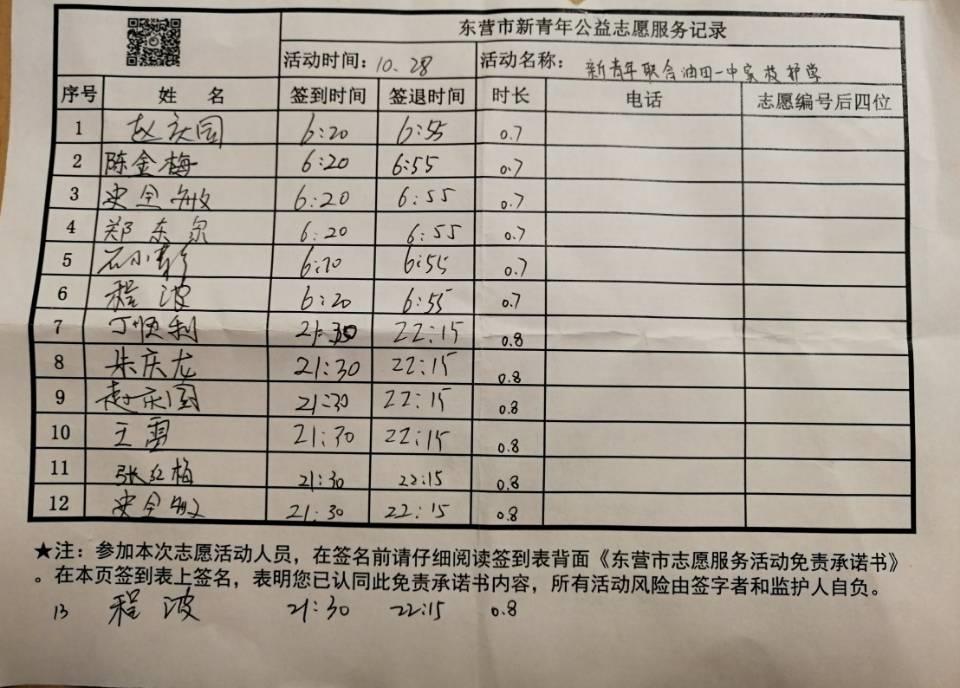 东营市新青年公益志愿服务记录
活动时间：10.28 活动名称：新青年联合油田一中家校护学
序号 姓 名 签到时间 签退时间 时长 电话 志愿编号后四位
1 赵庆国 6:20 6:55 0.7
2 陈金梅 6:20 6:55 0.7
3 史全敏 6:20 6:55 0.7
4 郑东 6:20 6:55 0.7
5 石小 6:20 6:55 0.7
6 程波 6:20 6:55 0.7
7 丁顺利 21:30 22:15 0.8
8 朱庆龙 21:30 22:15 0.8
9 赵庆国 21:30 22:15 0.8
10 王雷 21:30 22:15 0.8
11 张红梅 21:30 22:15 0.8
12 史全敏 21:30 22:15 0.8
★注：参加本次志愿活动人员，在签名前请仔细阅读签到表背面《东营市志愿服务活动免责承诺书》
。在本页签到表上签名，表明您已认同此免责承诺书内容，所有活动风险由签字者和监护人自负。
13 程波 21:30 22:15 0.8